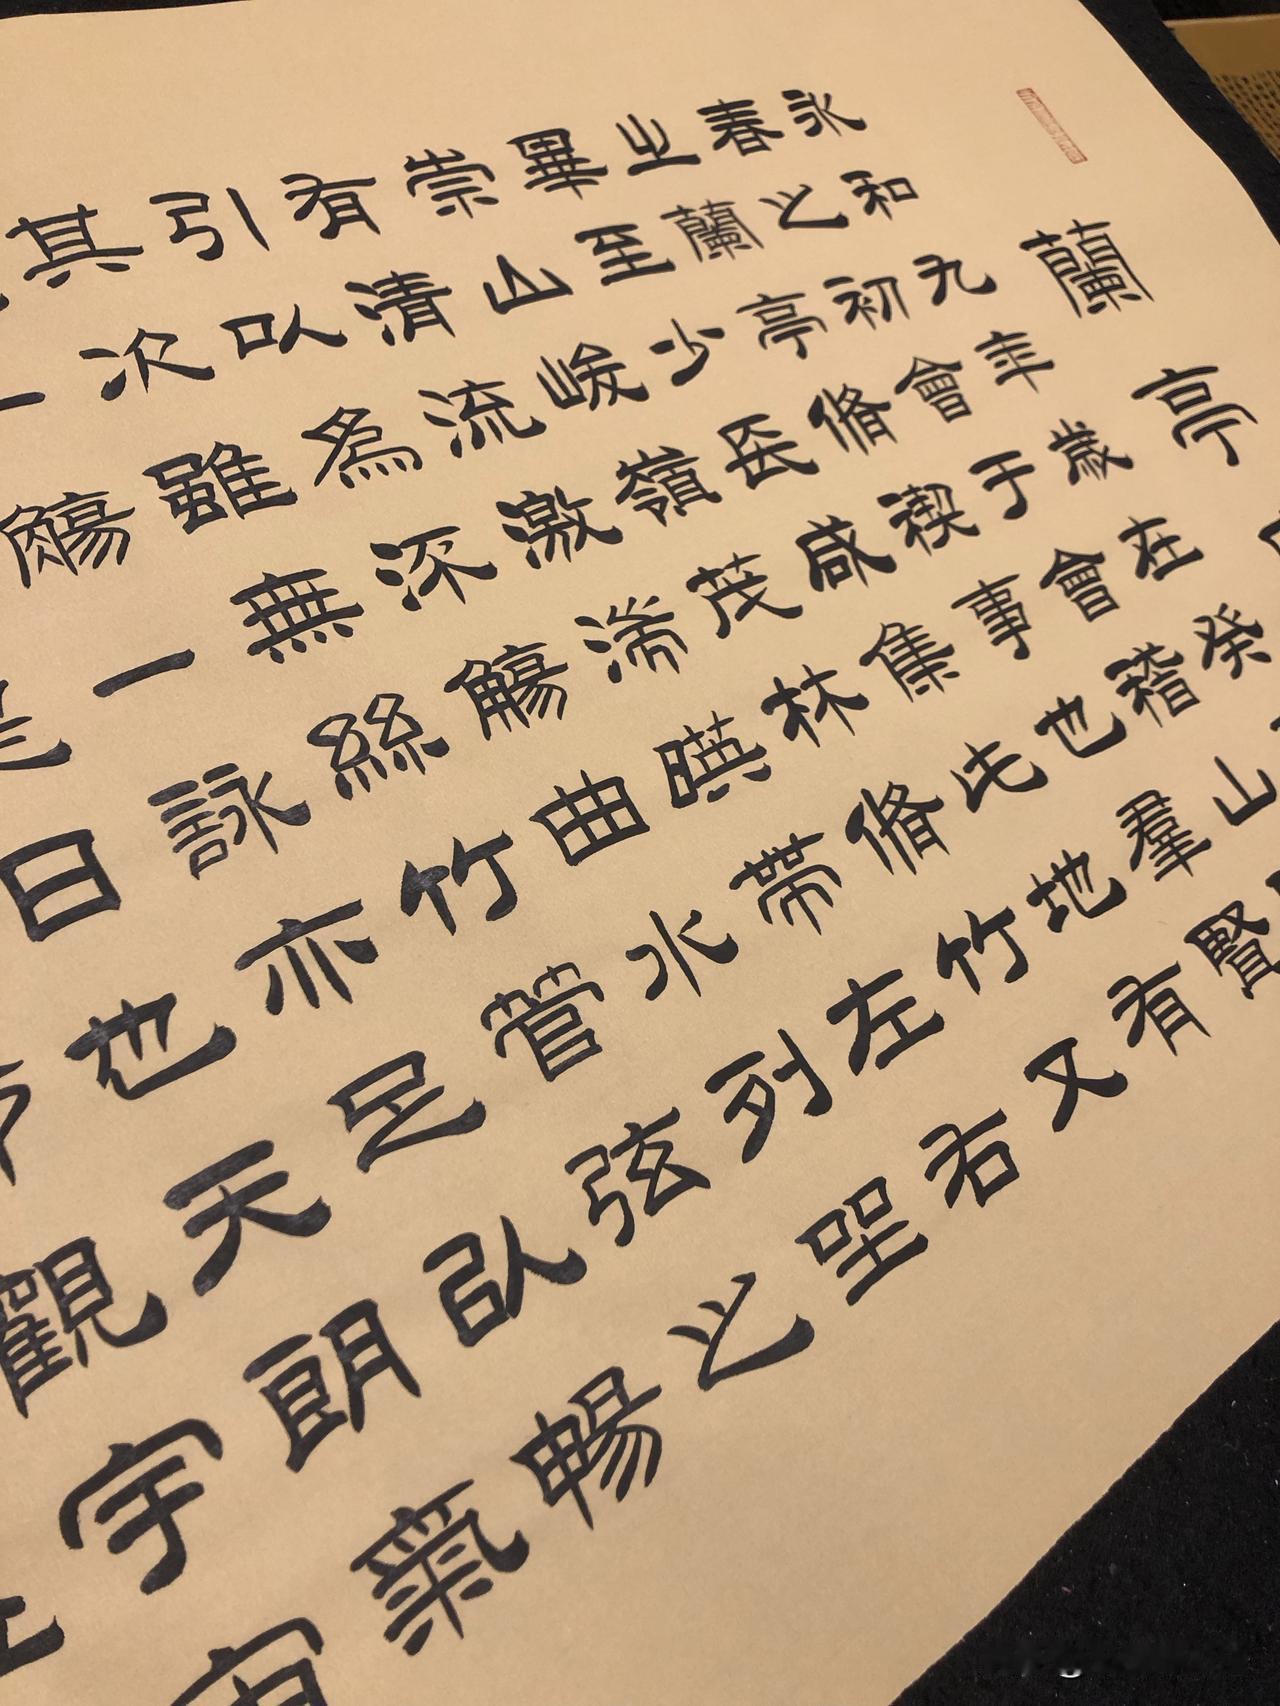 蘭亭
永和九年歲在癸
春之初會于會稽山
之蘭亭脩禊事也羣賢
畢至少長咸集此地有
崇山峻嶺茂林脩竹又
有清流激湍暎帶左右
引以為流觴曲水列坐
其次雖無絲竹管弦之
一觴一詠亦足以暢
是日也天朗氣
觀宇宙